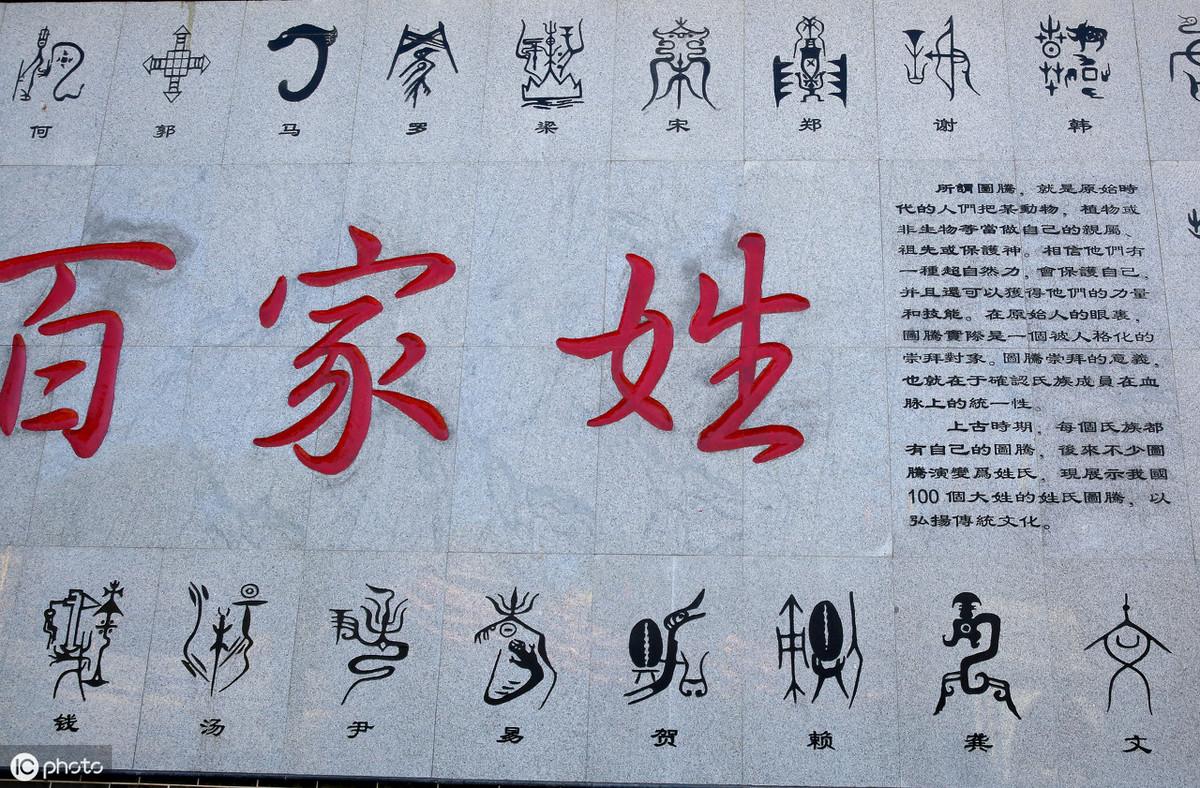 何 郭 马 罗 梁 宋 郑 谢 韩
百家姓
所謂圖騰，就是原始時
代的人們把某動物，植物或
非生物等當做自己的親屬、
祖先或保護神。相信他們有
一種超自然力，會保護自己，
并且還可以獲得他們的力量
和技能。在原始人的眼裏，
圖騰實際是一個被人格化的
崇拜對象。圖騰崇拜的意義，
也就在于確認氏族成員在血
脉上的統一性。
上古時期，每個氏族都
有自己的圖騰，後來不少圖
騰演變爲姓氏，現展示我國
100個大姓的姓氏圖騰，以
弘揚傳統文化。
钱 汤 尹 易 贺 赖 龚 文
IC photo